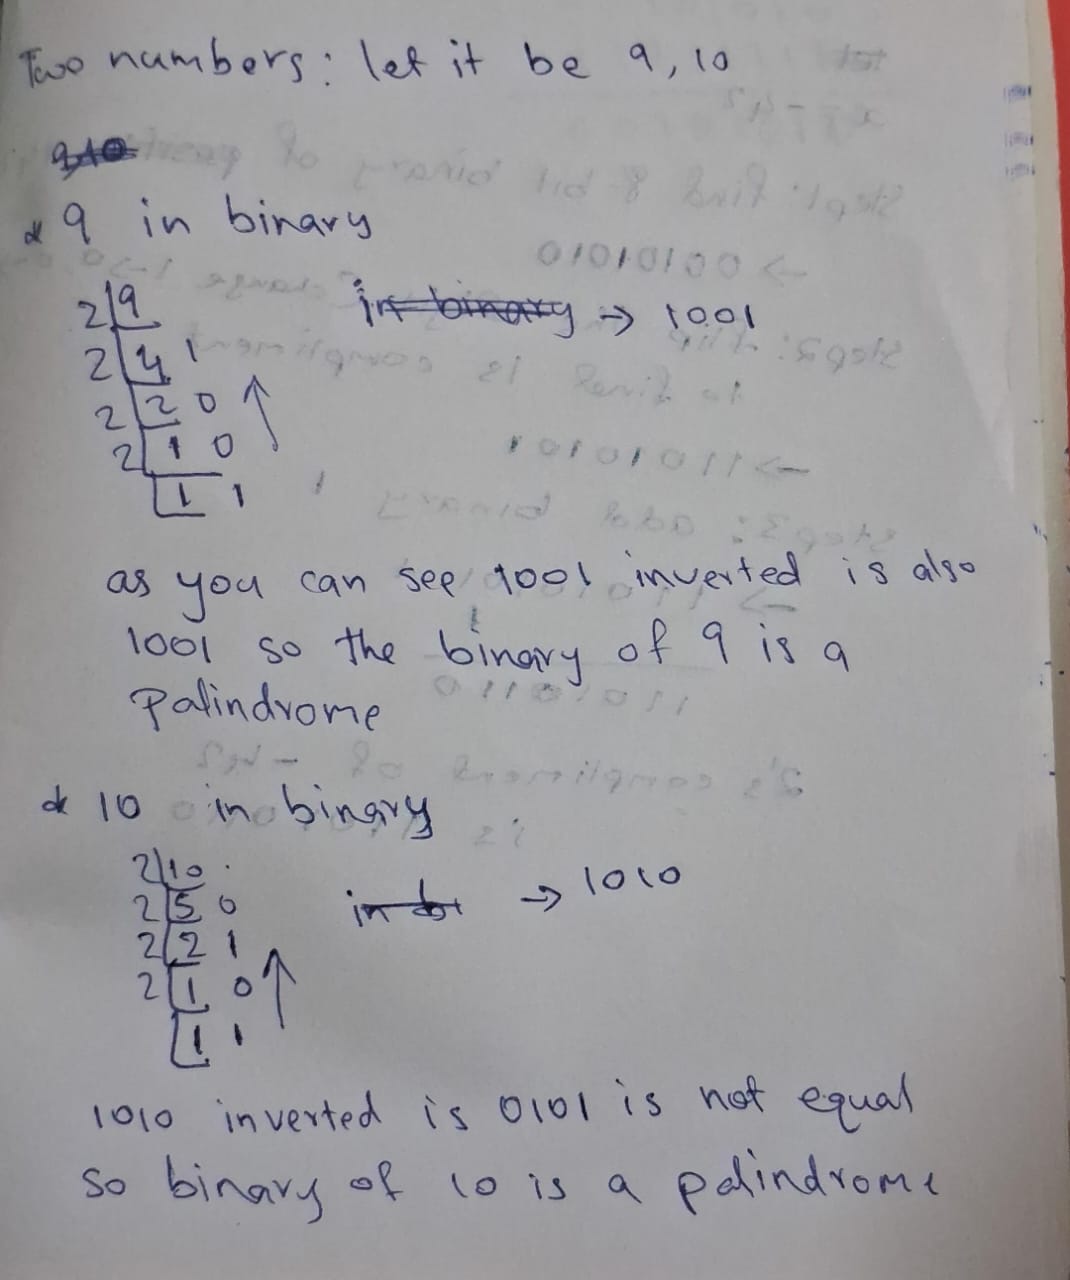 Two numbers: let it be 9, 10
9 in binary
2 9
in binary → 1001
2 4 1
2 2 0
2 1 0
1 1
as you can see 1001 inverted is also
1001 so the binary of 9 is a
palindrome
10 in binary
2 10
2 5 0
→ 1010
2 2 1
2 1 0
1 1
1010 inverted is 0101 is not equal
so binary of 10 is a palindrome